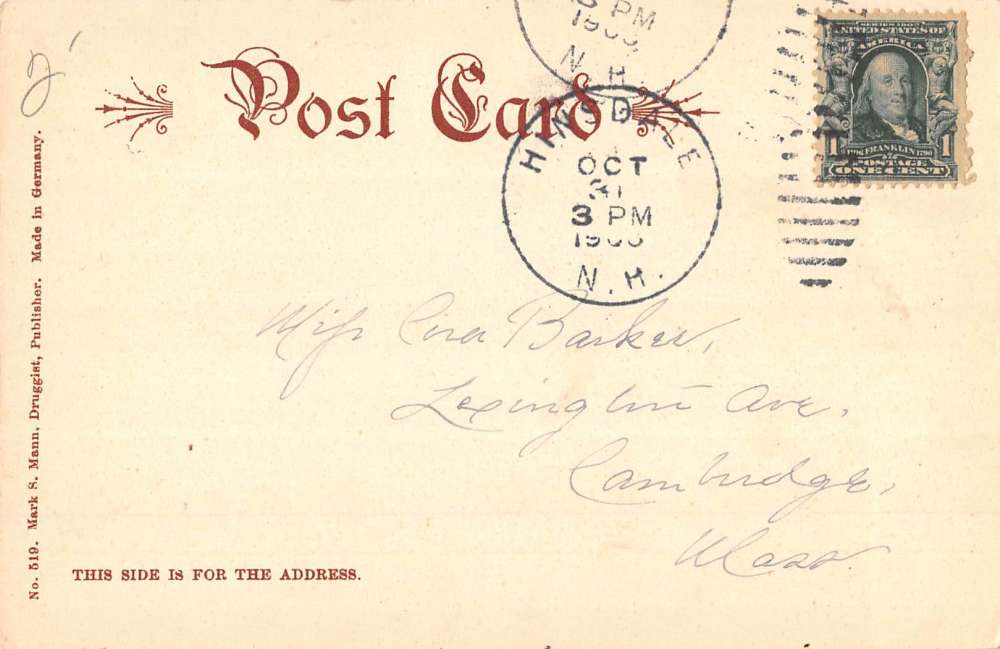 3 PM
N.H.
SERIES 1902
UNITED STATES OF
AMERICA
1706 FRANKLIN 1790
1 POSTAGE 1
ONE CENT
Post Card
HINSDALE
OCT
31
3 PM
N.H.
Miss Cora Barker,
Lexington Ave.
Cambridge,
Mass.
THIS SIDE IS FOR THE ADDRESS.
No. 519. Mark S. Mann, Druggist, Publisher. Made in Germany.
2